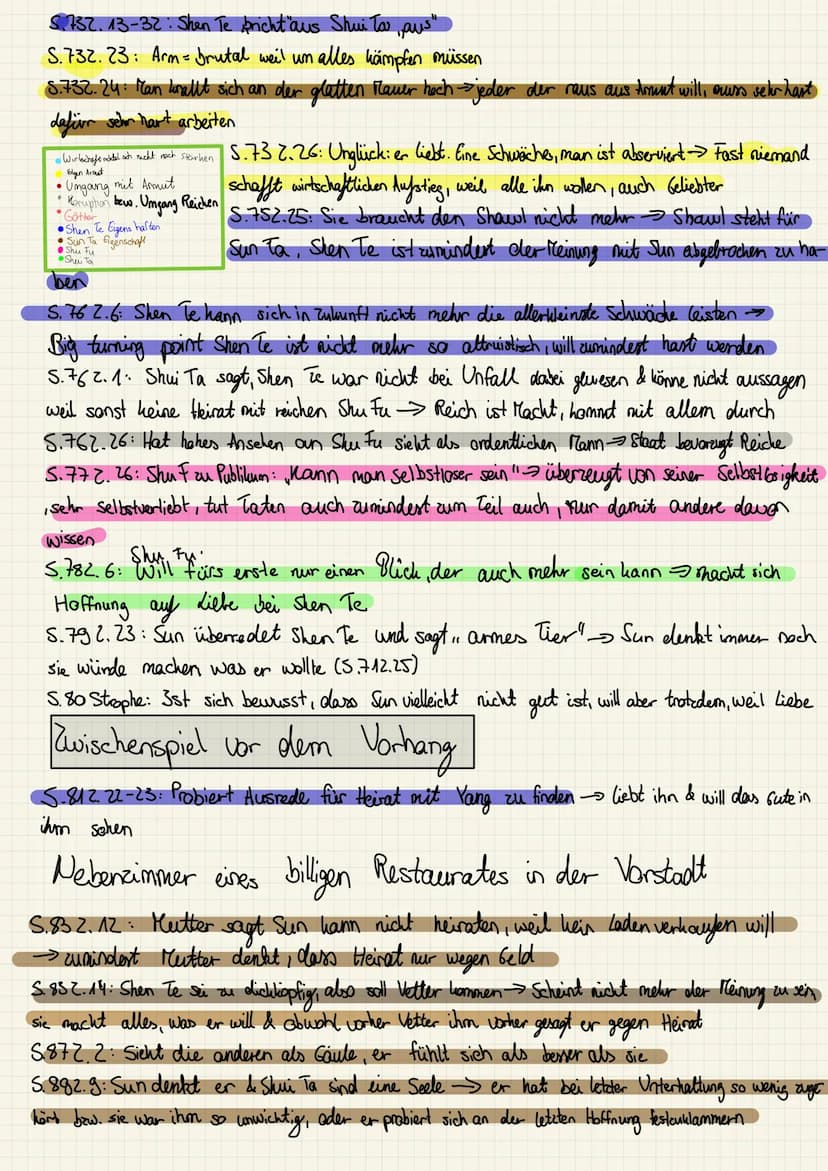 S.73Z.13-32: Shen Te bricht "aus Shui Ta „aus"
S.73Z.23: Arm = brutal weil um alles kämpfen müssen
S.73Z.24: Man krallt sich an der glatten Mauer hoch → jeder der raus aus Armut will, muss sehr hart
dafür sehr hart arbeiten
Umgang mit Armut
Korruption bzw. Umgang Reichen
Götter
Shen Te Eigenschaften
Sun Ta Eigenschaft
Shu Fu
Shui Ta
S.73Z.26: Unglück: er liebt. Eine Schwäche, man ist abserviert → Fast niemand
schafft wirtschaftlichen Aufstieg, weil alle ihn wollen, auch Geliebter
S.75Z.25: Sie braucht den Shawl nicht mehr → Shawl steht für
Sun Ta, Shen Te ist zumindest der Meinung mit Sun abgebrochen zu ha-
ben
S.76 Z.6: Shen Te kann sich in Zukunft nicht mehr die allerkleinste Schwäche leisten →
Big turning point Shen Te ist nicht mehr so altruistisch, will zumindest hart werden
S.76Z.1: Shui Ta sagt, Shen Te war nicht bei Unfall dabei gewesen & könne nicht aussagen
weil sonst keine Heirat mit reichen Shu Fu → Reich ist Macht, kommt mit allem durch
S.76Z.26: Hat hohes Ansehen an Shu Fu sieht als ordentlichen Mann → Staat bevorzugt Reiche
S.77Z.26: Shu F zu Publikum: „Kann man selbstloser sein" → überzeugt von seiner Selbstlosigkeit
, sehr selbstverliebt, tut Taten auch zumindest zum Teil auch, nur damit andere davon
wissen
Shu Fu:
S.78Z.6: Will fürs erste nur einen Blick, der auch mehr sein kann → macht sich
Hoffnung auf Liebe bei Shen Te
S.79 Z.23: Sun überredet Shen Te und sagt „ armes Tier" → Sun denkt immer noch
sie würde machen was er wollte (S.71Z.25)
S.80 Strophe: Ist sich bewusst, dass Sun vielleicht nicht gut ist, will aber trotzdem, weil Liebe
Zwischenspiel vor dem Vorhang
S.81Z.22-23: Probiert Ausrede für Heirat mit Yang zu finden → liebt ihn & will das Gute in
ihm sehen
Nebenzimmer eines billigen Restaurates in der Vorstadt
S.83Z.12: Mutter sagt Sun kann nicht heiraten, weil kein Laden verkaufen will
→ zumindest Mutter denkt, dass Heirat nur wegen Geld
S.85Z.14: Shen Te sei zu dickköpfig, also soll Vetter kommen → Scheint nicht mehr der Meinung zu sein,
sie macht alles, was er will & obwohl vorher Vetter ihm vorher gesagt er gegen Heirat
S.87Z.2: Sieht die anderen als Gäule, er fühlt sich als besser als sie
S.88Z.9: Sun denkt er & Shui Ta sind eine Seele → er hat bei letzter Unterhaltung so wenig zuge-
hört bzw. sie war ihm so unwichtig, oder er probiert sich an der letzten Hoffnung festzuklammern